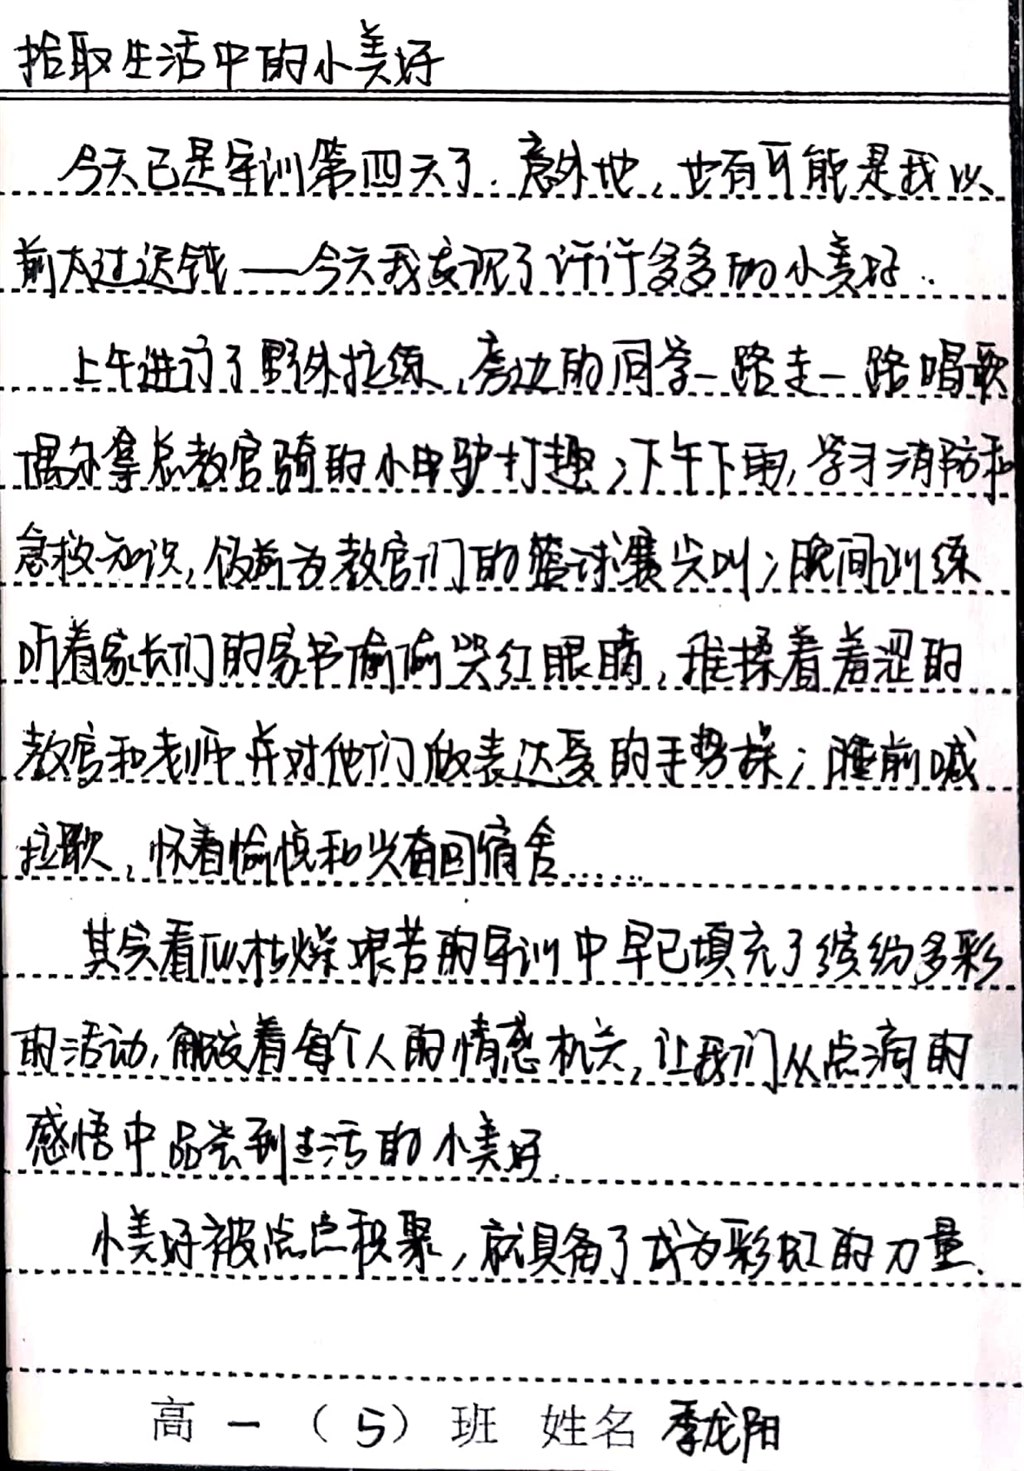 拾取生活中的小美好
今天已是军训第四天了.意外地,也有可能是我以
前太过迟钝——今天我发现了许许多多的小美好..
上午进行了野外拉练,旁边的同学一路走一路唱歌
偶尔拿总教官骑的小电驴打趣;下午下雨,学习消防和
急救知识,饭前为教官们的篮球赛尖叫;晚间训练
听着家长们的家书偷偷哭红眼睛,推搡着羞涩的
教官和老师并对他们做表达爱的手势操;睡前喊
拉歌,怀着愉悦和兴奋回宿舍......
其实看似枯燥艰苦的军训中早已填充了缤纷多彩
的活动,触发着每个人的情感机关,让我们从点滴的
感悟中品尝到生活的小美好.
小美好被点点积聚,就具备了成为彩虹的力量.
高一(5)班 姓名 季龙阳